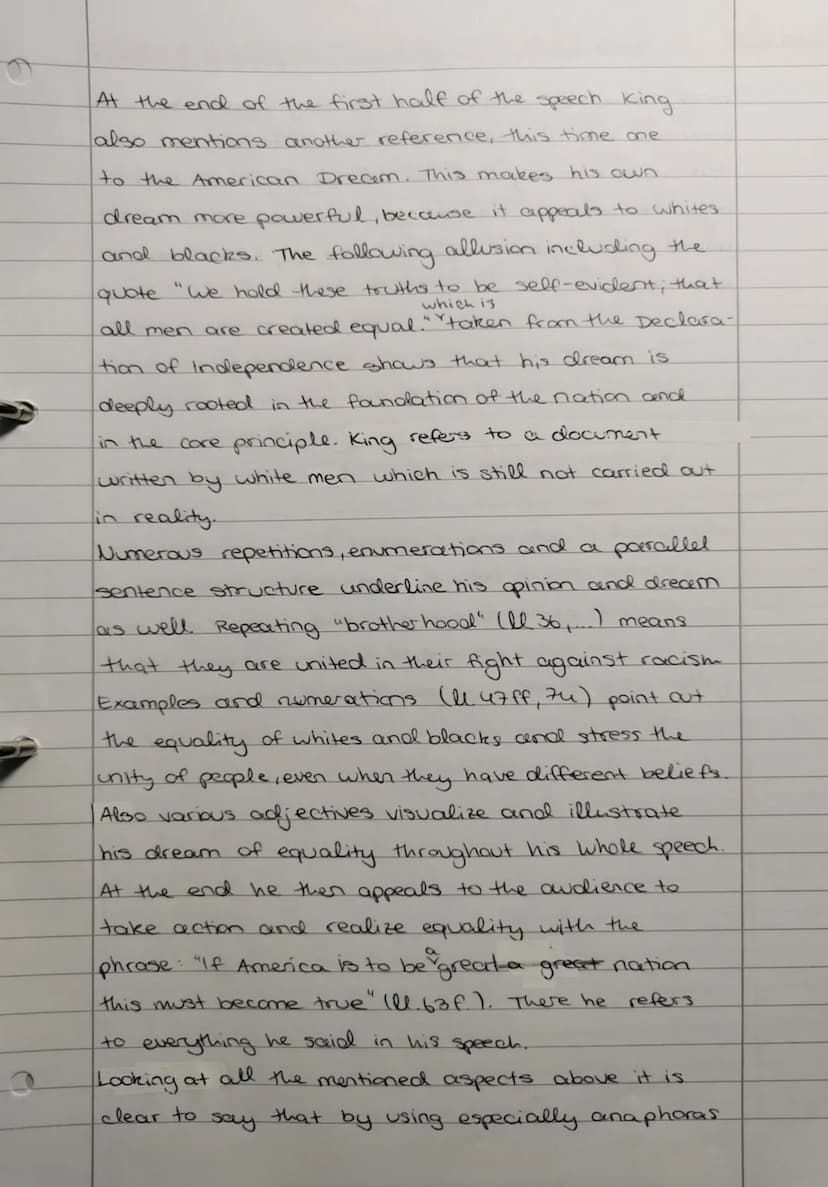 At the end of the first half of the speech King
also mentions another reference, this time one
to the American Dream. This makes his own
dream more powerful, because it appeals to whites
and blacks. The following allusion including the
quote "We hold these truths to be self-evident; that
which is
all men are created equal." taken from the Declara-
tion of Independence shows that his dream is
deeply rooted in the foundation of the nation and
in the core principle. King refers to a document
written by white men which is still not carried out
in reality.
Numerous repetitions, enumerations and a parallel
sentence structure underline his opinion and dream
as well. Repeating "brotherhood" (ll. 36,...) means
that they are united in their fight against racism
Examples and numerations (ll. 47ff, 74) point out
the equality of whites and blacks and stress the
unity of people, even when they have different beliefs.
Also various adjectives visualize and illustrate
his dream of equality throughout his whole speech.
At the end he then appeals to the audience to
take action and realize equality with the
a
phrase: "If America is to be great a great nation
this must become true" (ll. 63f.). There he refers
to everything he said in his speech.
Looking at all the mentioned aspects above it is
clear to say that by using especially anaphoras